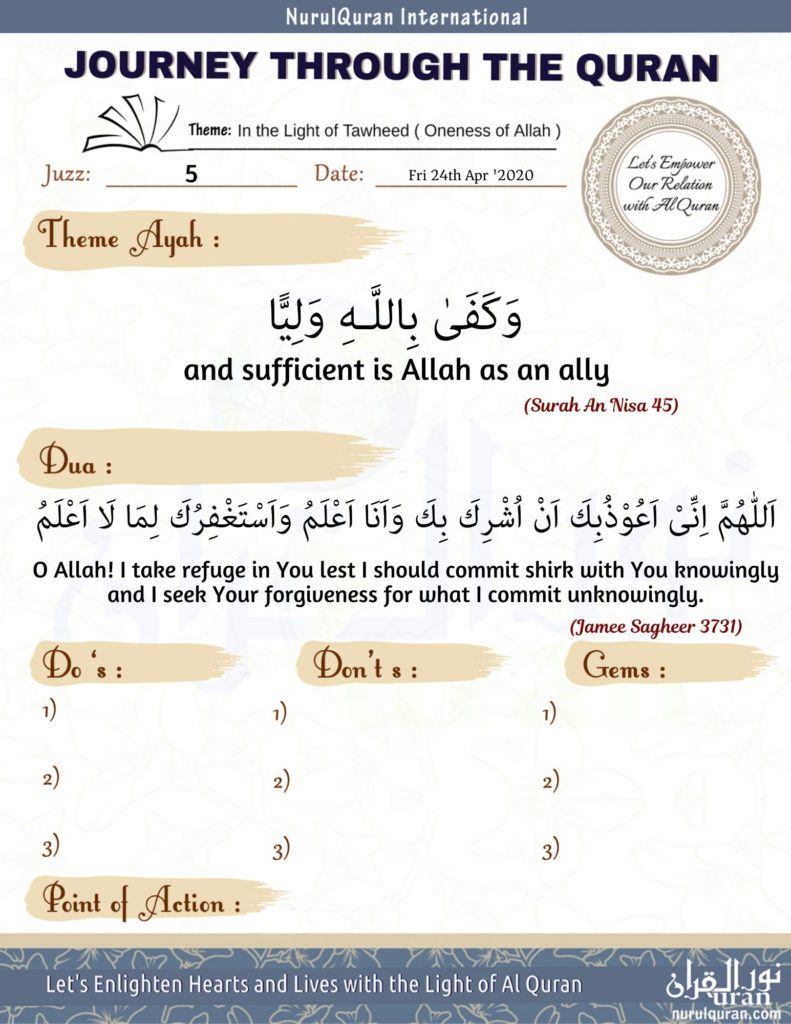 NurulQuran International
JOURNEY THROUGH THE QURAN
Theme: In the Light of Tawheed ( Oneness of Allah )
Let's Empower
Our Relation
with Al Quran
Juzz: 5 Date: Fri 24th Apr '2020
Theme Ayah :
وَكَفَىٰ بِاللَّـهِ وَلِيًّا
and sufficient is Allah as an ally
(Surah An Nisa 45)
Dua :
اَللّٰهُمَّ اِنِّىْ اَعُوْذُبِكَ اَنْ اُشْرِكَ بِكَ وَاَنَا اَعْلَمُ وَاَسْتَغْفِرُكَ لِمَا لَا اَعْلَمُ
O Allah! I take refuge in You lest I should commit shirk with You knowingly
and I seek Your forgiveness for what I commit unknowingly.
(Jamee Sagheer 3731)
Do 's : Don't s : Gems :
1) 1) 1)
2) 2) 2)
3) 3) 3)
Point of Action :
Let's Enlighten Hearts and Lives with the Light of Al Quran
نور القرآن
uran
nurulquran.com